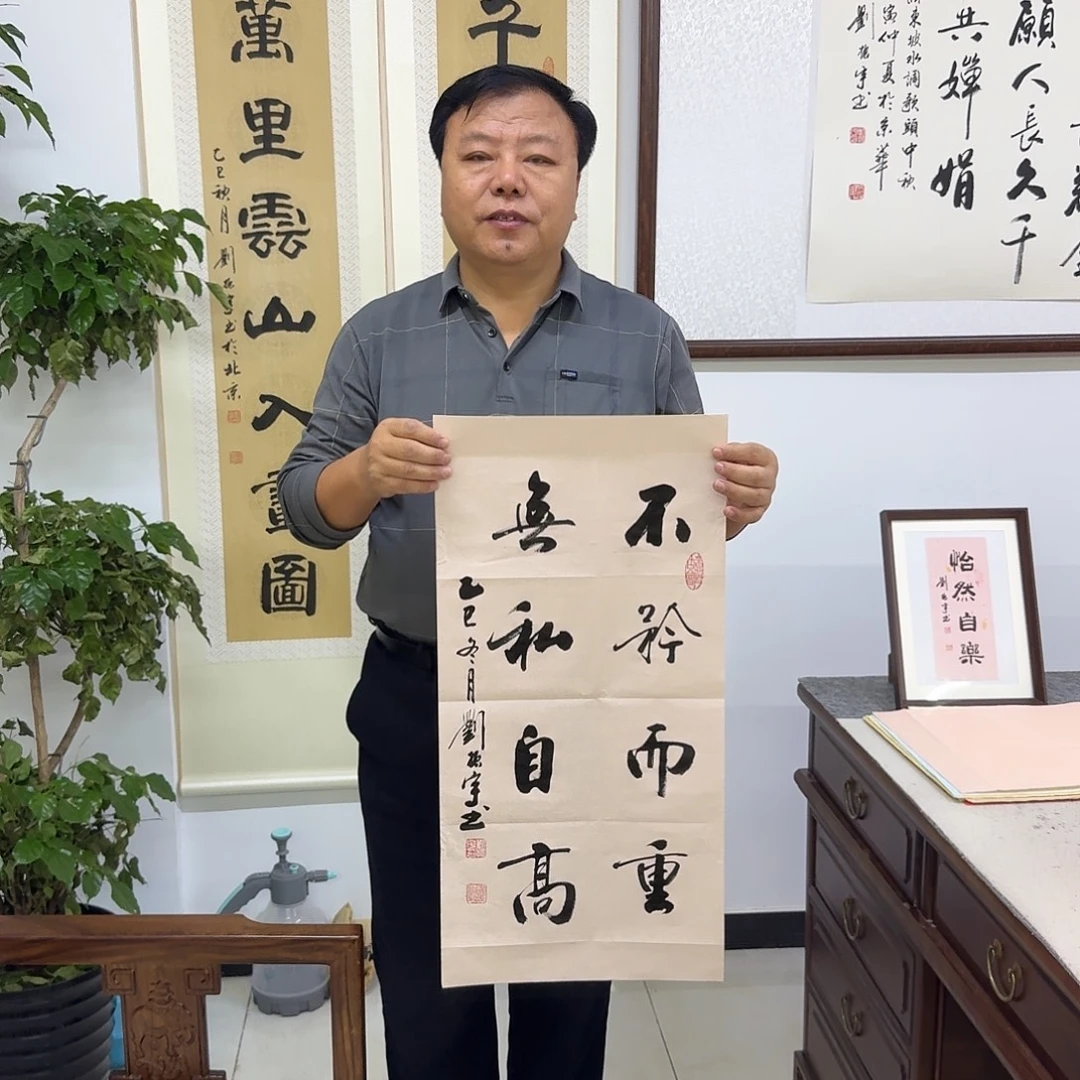 不矜而重
無私自高
乙巳冬月劉振宇书
萬里雲山入畫圖
乙巳秋月劉振宇书於北京
千
願人長久千
共嬋娟
東坡水調歌頭中秋
寅仲夏於京華
劉振宇书
怡然自樂
劉振宇书